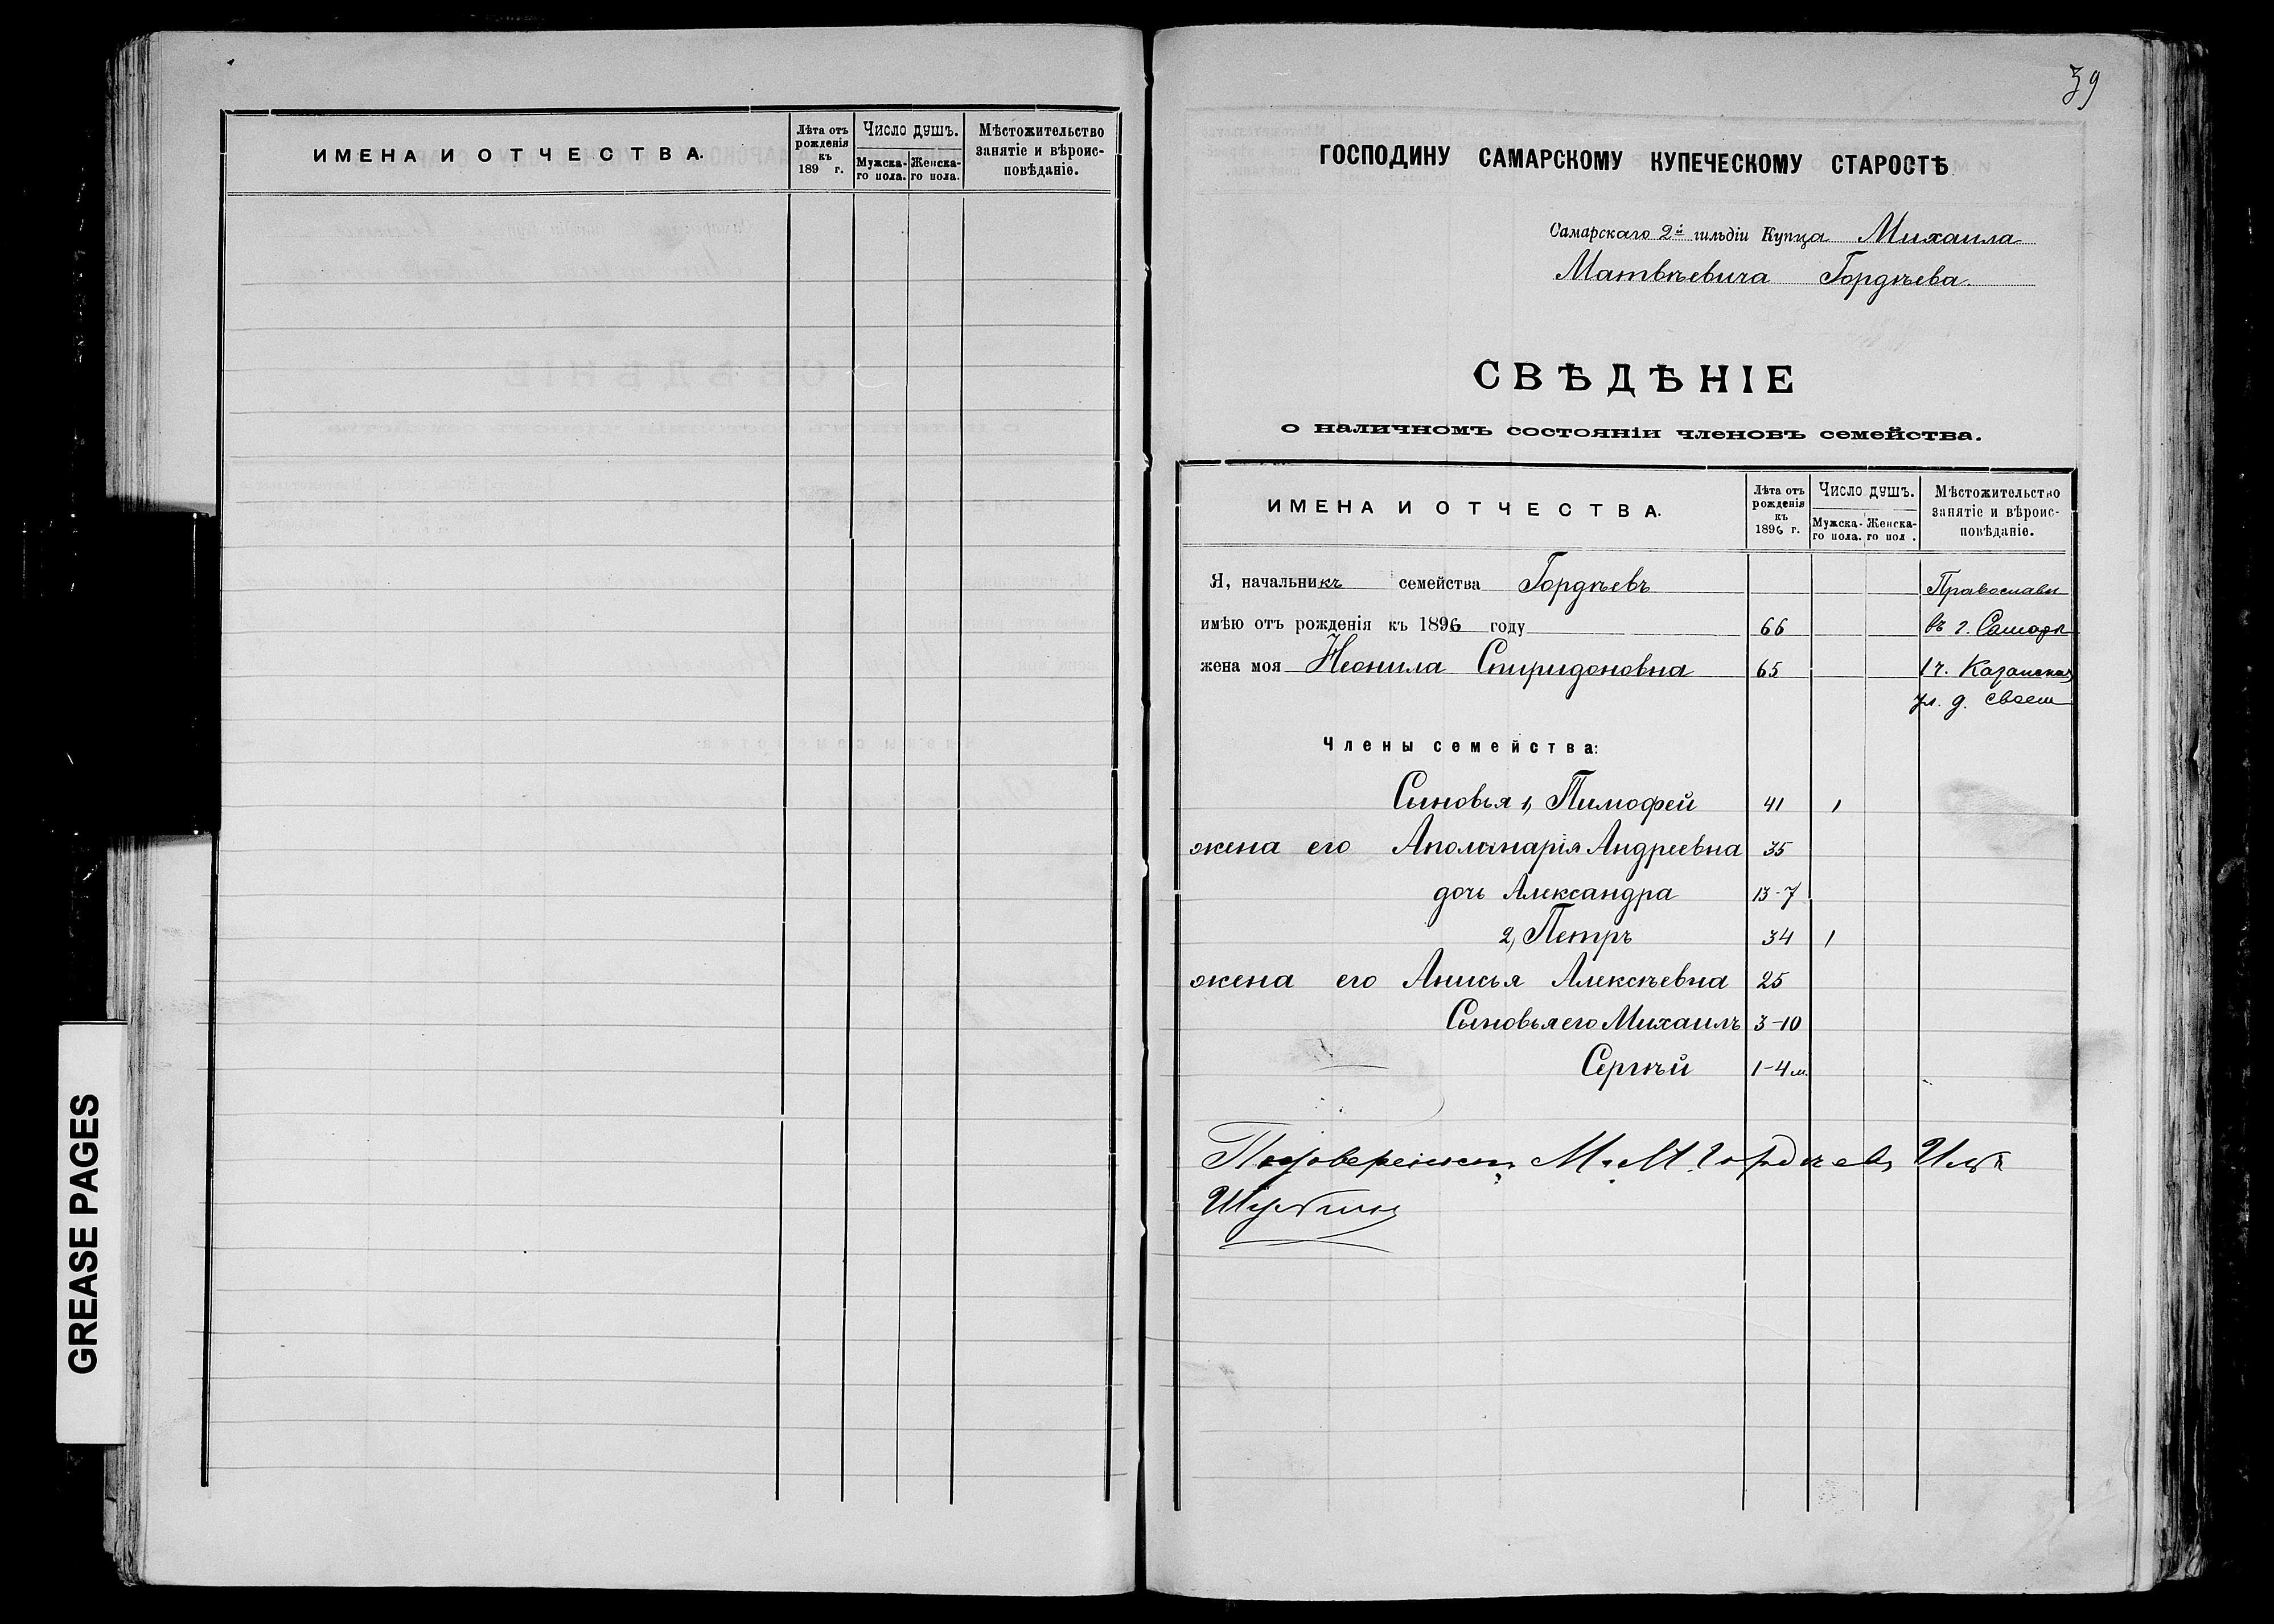 ИМЕНА И ОТЧЕСТВА.
Лѣта отъ рожденія къ 189 г.
Число душъ.
Мужска-го пола.
Женска-го пола.
Мѣстожительство занятіе и вѣроис-повѣданіе.
GREASE PAGES
39
ГОСПОДИНУ САМАРСКОМУ КУПЕЧЕСКОМУ СТАРОСТѢ
Самарскаго 2й гильдіи Купца Михаила
Матвѣевича Гордѣева.
СВѢДѢНІЕ
о наличномъ состояніи членовъ семейства.
ИМЕНА И ОТЧЕСТВА.
Лѣта отъ рожденія къ 1896 г.
Число душъ.
Мужска-го пола.
Женска-го пол .
Мѣстожительство занятіе и вѣроис-повѣданіе.
Я, начальникъ семейства Гордѣевъ Православн
имѣю отъ рожденія къ 1896 году 66 въ г. Самарѣ
жена моя Неонила Спиридоновна 65 1 ч. Казанская
ул. д. своем
Члены семейства:
Сыновья 1, Тимофей 41 1
жена его Аполинарія Андреевна 35
дочь Александра 13-7
2, Петръ 34 1
жена его Анисья Алексѣевна 25
Сыновья его Михаилъ 3-10
Сергѣй 1-4 м.
М. М. Гордѣева